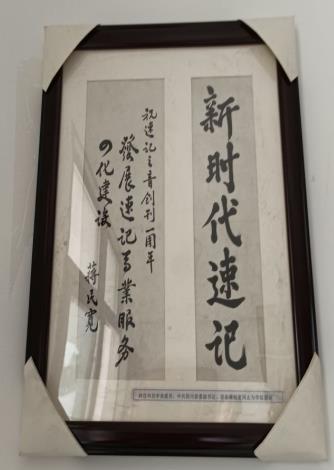 新时代速记
祝速记之音创刊一周年
發展速记事業服务
四化建设
蒋民宽